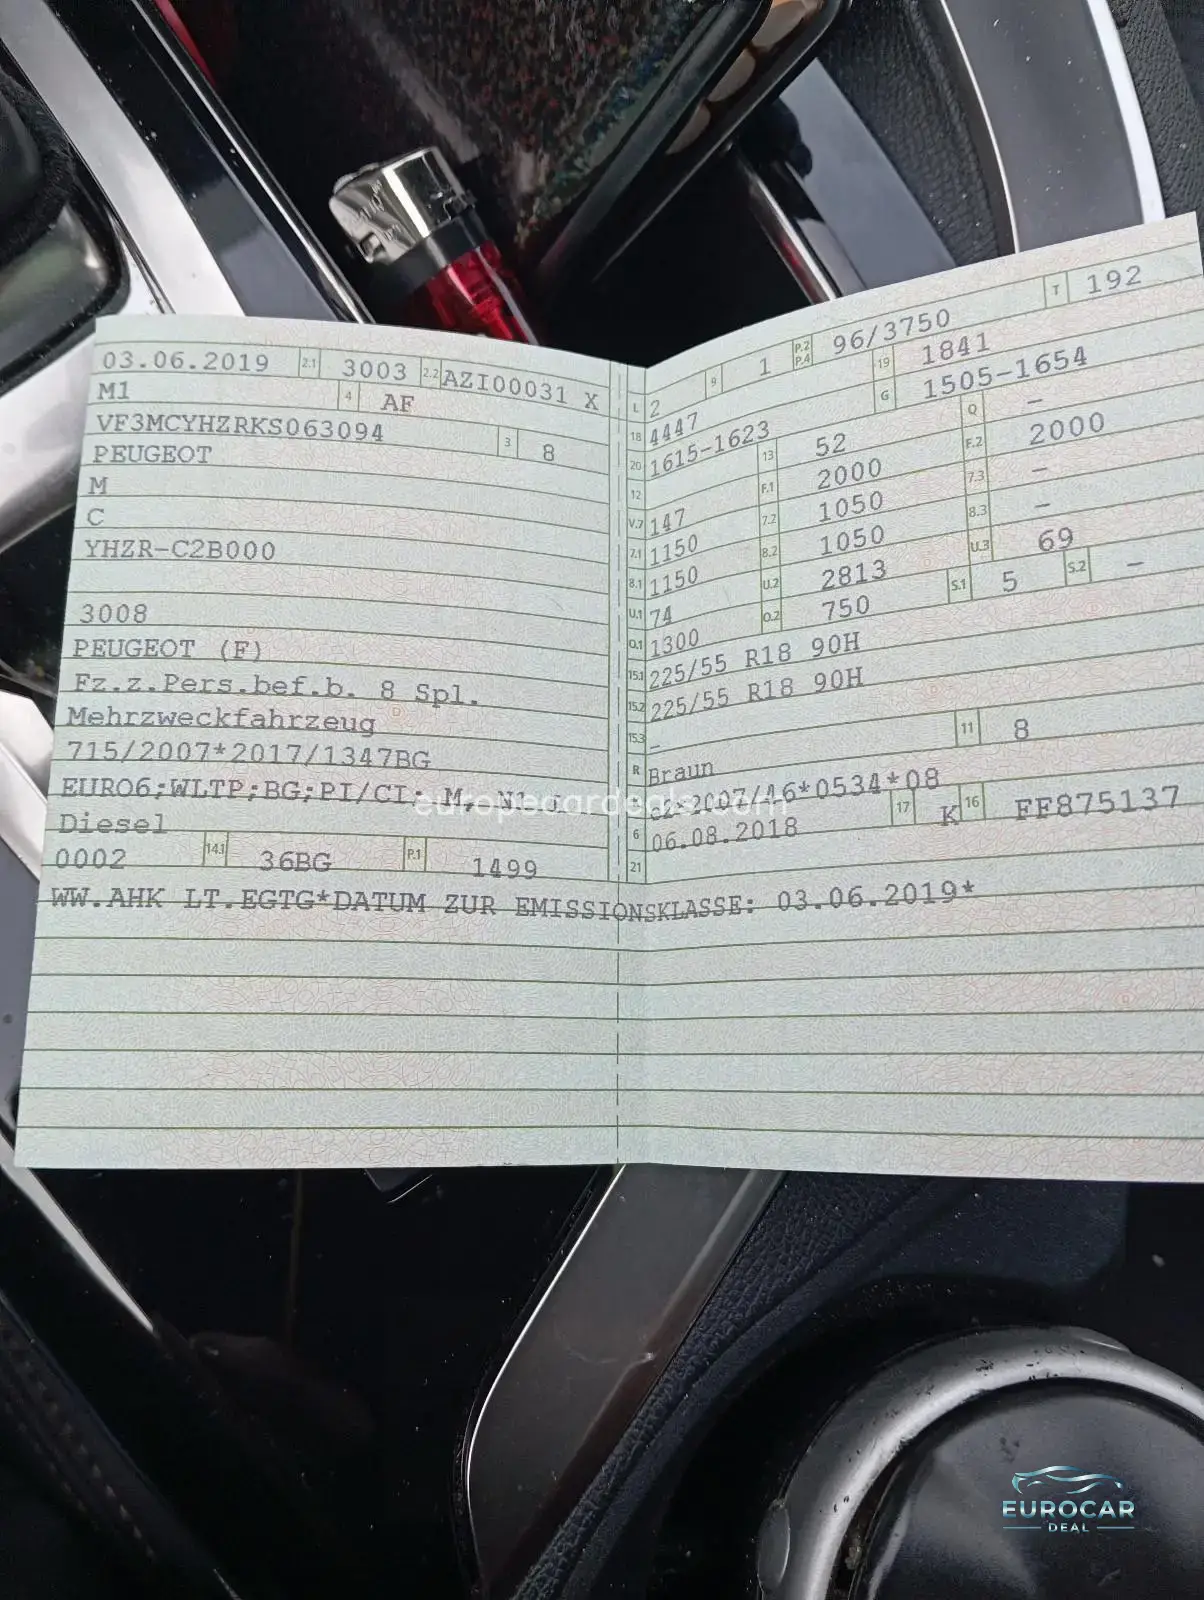 03.06.2019 2.1 3003 2.2 AZI00031 X
M1 4 AF
VF3MCYHZRKS063094 3 8
PEUGEOT
M
C
YHZR-C2B000
3008
PEUGEOT (F)
Fz.z.Pers.bef.b. 8 Spl.
Mehrzweckfahrzeug
715/2007*2017/1347BG
EURO6;WLTP;BG;PI/CI; M, N1 I
Diesel
0002 14.1 36BG P.1 1499
L 2 9 1 P.2 P.4 96/3750 T 192
18 4447 19 1841
20 1615-1623 G 1505-1654
12 13 52 Q -
V.7 147 F.1 2000 F.2 2000
7.1 1150 7.2 1050 7.3 -
8.1 1150 8.2 1050 8.3 -
U.1 74 U.2 2813 U.3 69
O.1 1300 O.2 750 S.1 5 S.2 -
15.1 225/55 R18 90H
15.2 225/55 R18 90H
15.3 -
R Braun 11 8
e2*2007/46*0534*08
6 06.08.2018 17 K 16 FF875137
21
WW.AHK LT.EGTG*DATUM ZUR EMISSIONSKLASSE: 03.06.2019*
europecardeals.com
EUROCAR
DEAL